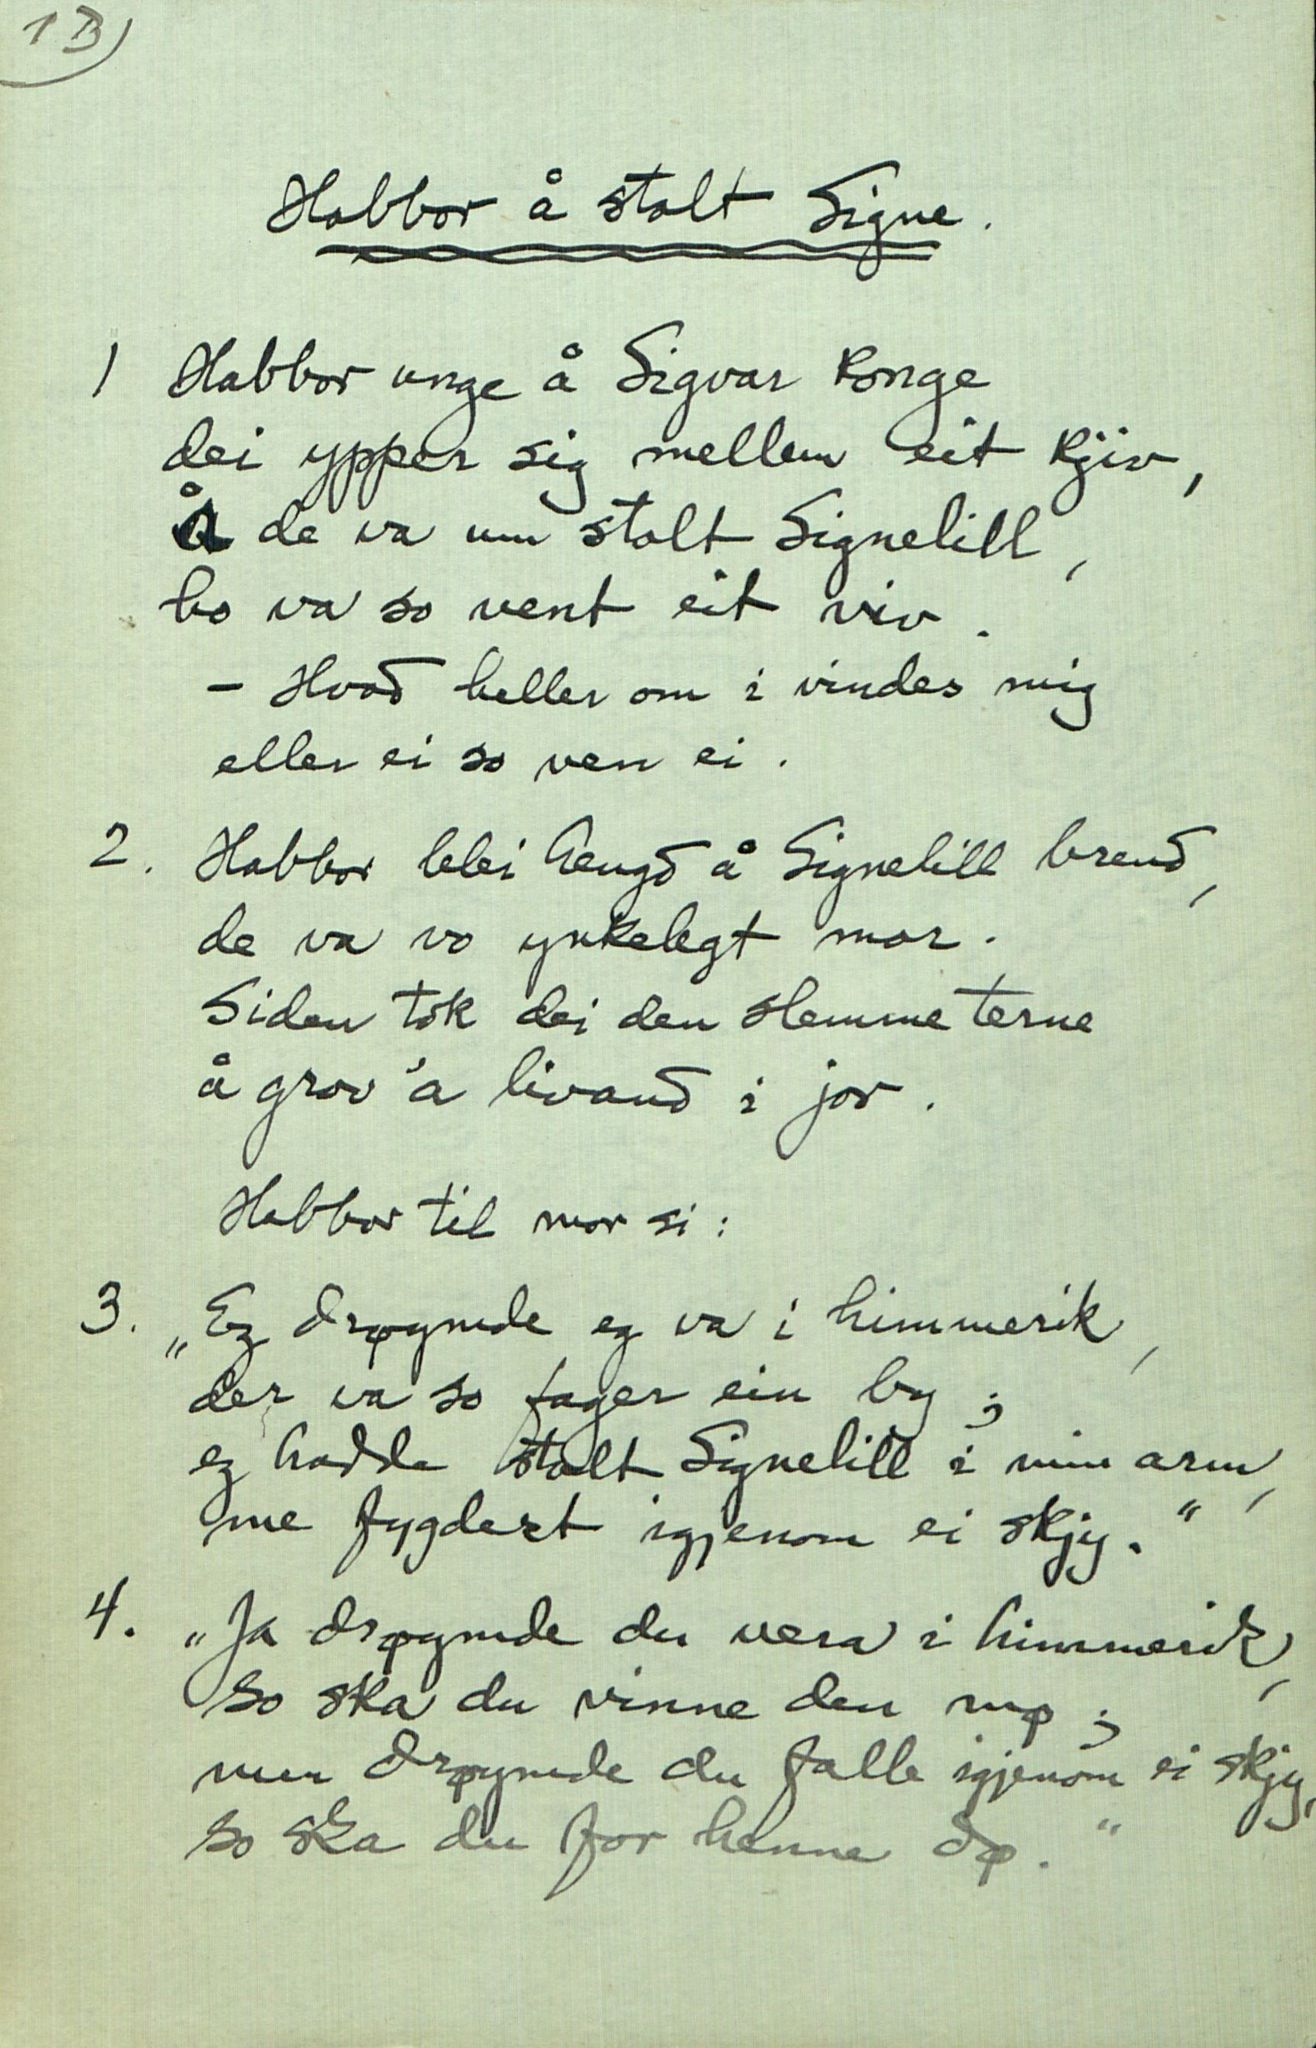 1B)
Habbor å stolt Signe.
1 Habbor unge å Sigvar konge
dei ypper sig mellem eit kjiv,
Å de va um stolt Signelill,
ho va so vent eit viv.
- Hvad heller om i vindes mig
eller ei so ven ei.
2. Habbor blei hengd å Signelill brend,
de va vo ynkelegt mor.
Siden tok dei den slemme terne
å grov 'a livand i jor.
Habbor til mor si:
3. „Eg drøymde eg va i himmerik,
der va so fager ein by;
eg hadde stolt Signelill i min arm,
me fygdest igjenom ei skjy.“
4. „Ja drøymde du vera i himmerik,
so ska du vinne den mø;
men drøymde du falle igjenom ei skjy,
so ska du for henne dø.“